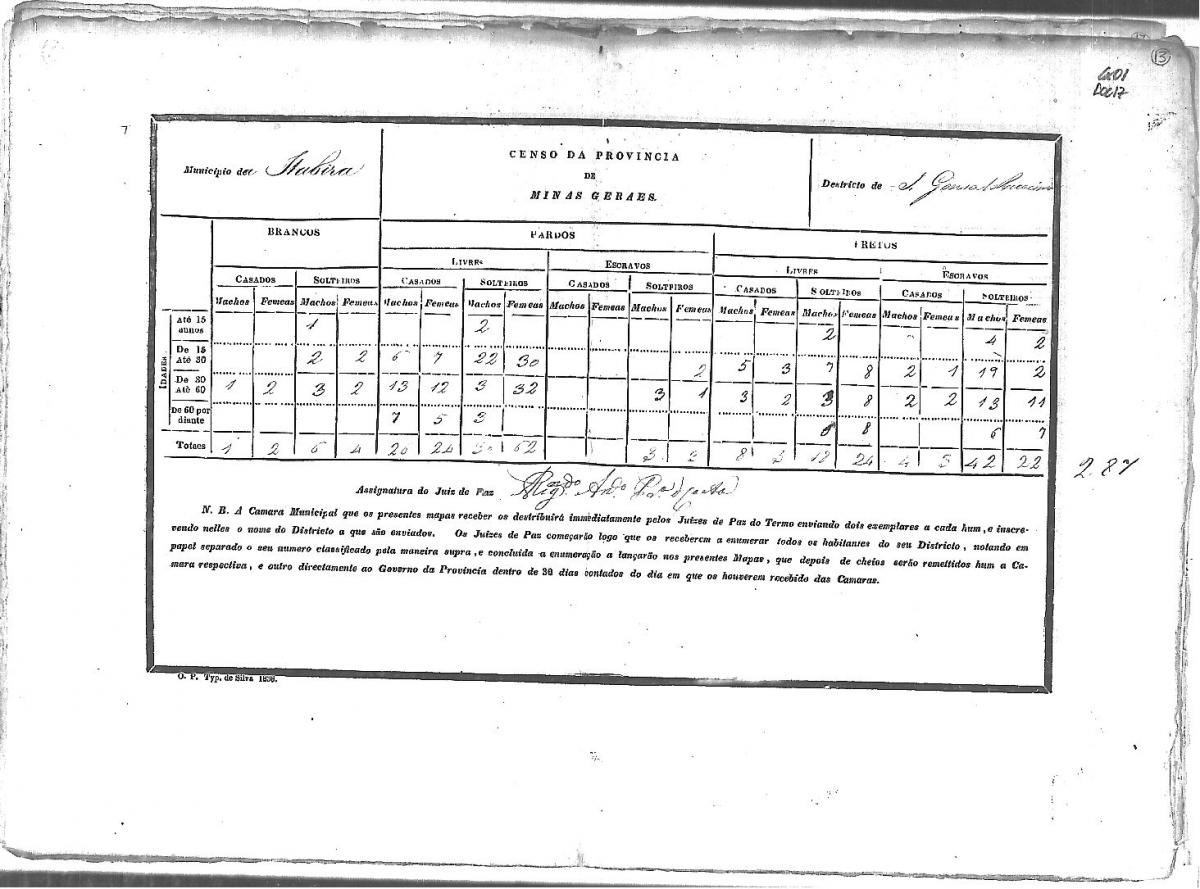 13
Cx01
Doc17
7
Municipio de Itabira
CENSO DA PROVINCIA
DE
MINAS GERAES.
Destricto de S. Gonsal
BRANCOS PARDOS PRETOS
LIVRES ESCRAVOS LIVRES ESCRAVOS
CASADOS SOLTEIROS CASADOS SOLTEIROS CASADOS SOLTEIROS CASADOS SOLTEIROS CASADOS SOLTEIROS
Machos Femeas Machos Femeas Machos Femeas Machos Femeas Machos Femeas Machos Femeas Machos Femeas Machos Femeas Machos Femeas Machos Femeas
IDADES.
Até 15 annos 1 2 2 4 2
De 15 Até 30 2 2 7 22 30 2 5 3 7 8 2 1 19 2
De 30 Até 60 1 2 3 2 13 12 3 32 3 1 3 2 3 8 2 2 13 11
De 60 por diante 7 5 3 8 6 7
Totaes 1 2 6 4 20 24 30 62 3 3 8 24 4 3 42 22
287
Assignatura do Juiz de Paz
N. B. A Camara Municipal que os presentes mapas receber os destribuirá immediatamente pelos Juizes de Paz do Termo enviando dois exemplares a cada hum, e inscre-
vendo nelles o nome do Districto a que são enviados. Os Juizes de Paz começarão logo que os receberem a enumerar todos os habitantes do seu Districto, notando em
papel separado o seu numero classificado pela maneira supra, e concluida a enumeração a lançarão nos presentes Mapas, que depois de cheios serão remettidos hum a Ca-
mara respectiva, e outro directamente ao Governo da Provincia dentro de 30 dias contados do dia em que os houverem recebido das Camaras.
O. P. Typ. de Silva 1838.